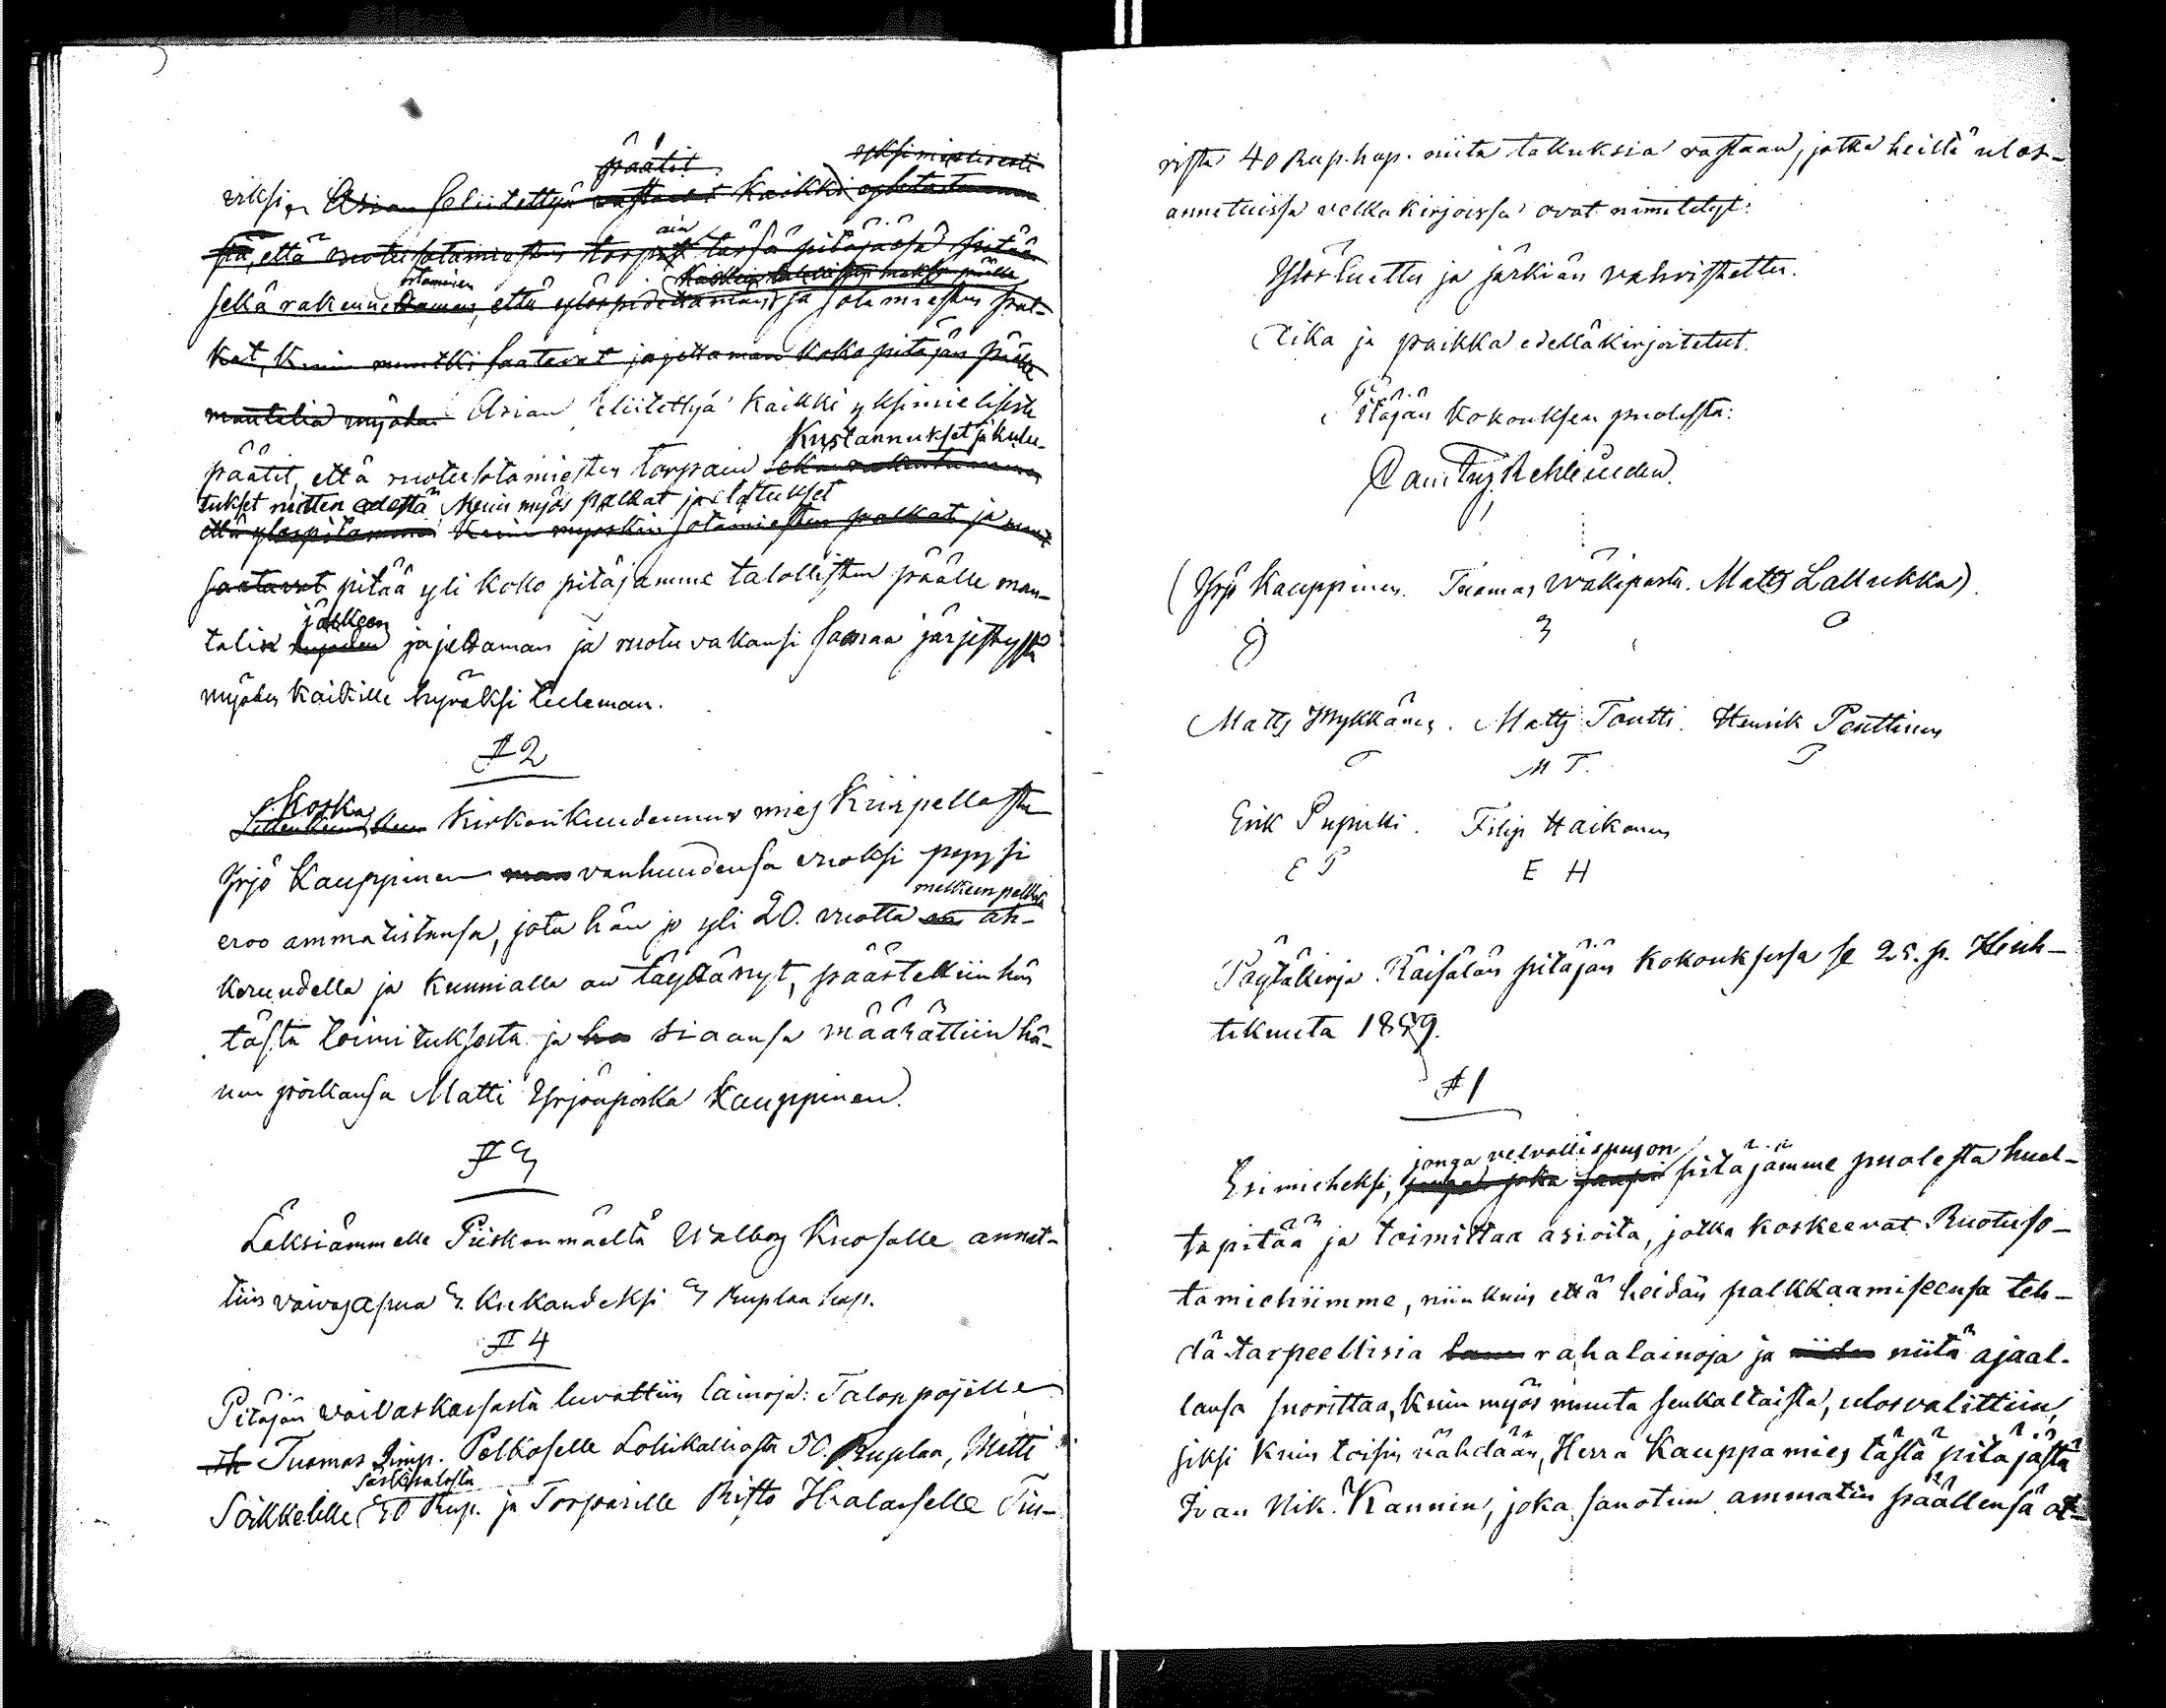 päätit yksimielisesti
viksi. Asian seliitettyä kaikki
sä, että ruotusotamiesten torpit tässä pitäjäsä pitää
sekä rakennettaman, että ylöspidettämän ja sotamiesten pal-
kat, kuin muutki saatavat jajettaman koko pitäjän päälle
manttalia myöden Asian seliitettyä kaikki yksimielisesti
Kustannukset ja kulu-
päätit, että ruotusotamiesten torpain
tukset niitten edestä kuin myös palkat ja elatukset
että ylöspitämine kuin myöskin sotamiesten palkat ja muut
saatavat pitää yli koko pitäjämme talollisten päälle man-
jälkeen
talin myöden jajettaman ja ruotu vakansi samaa järjestystä
myöden kaikille hyväksi tuleman.
# 2
Koska
Kirkonkuudennus mies Kriispellasta
Yrjö Kauppinen vanhuudensa vuoksi pyysi
melkeen palkata
eroo ammatistansa, jota hän jo yli 20. vuotta on ah-
keruudella ja kunnialla on täyttänyt, päästettiin hän
tästä toimituksesta ja ha siaansa määrättiin hä-
nen poikansa Matti Yrjönpoika Kauppinen.
# 3
Läksiämmelle Piiskonmäeltä Walborg Kuosalle annet-
tiin vaivasapua 3. kuukaudeksi 3 Ruplaa hop.
# 4
Pitäjän vaivaskassasta luvattiin lainoja: Talonpojille
Th Tuomas Simp. Polkoselle Lohikalliosta 50. Ruplaa, Matti
Särkisalosta
Säkkelille 50 Rup. ja Torparille Risto Hialaselle Tiu-
rista 40 Rup. hop. niitä takuksia vastaan, jotka heillä ulos-
annetuissa velkakirjoissa ovat nimitetyt.
Ylösluettu ja järkiän vahvistettu.
Aika ja paikka edelläkirjoitetut.
Pitäjän kokouksen puolesta:
(Yrjö Kauppinen. Tuomas Wäkiparta. Matts Lallukka).
Matts Mykkänen. Matts Tontti. Henrik Penttinen
M T.
Erik Pupulli. Filip Haikonen
E P E H
Pöytäkirja Räisälän pitäjän kokouksessa se 25. p. Huh-
tikuuta 1859.
# 1
jonga velvollisuus on
Esimieheksi, joka pitäjämme puolesta huol-
ta pitää ja toimittaa asioita, jotka koskeevat Ruotuso-
tamiehiimme, niinkuin että heidän palkkaamiseensa teh-
dä tarpeellisia rahalainoja ja niitä ajaal-
lansa suorittaa, kuin myös muuta senkaltaista, ulosvalittiin,
siksi kuin toisin nähdään, Herra Kauppamies tästä pitäjästä
Ivan Nik. Kannin, joka sanotun ammatin päällensä ot-